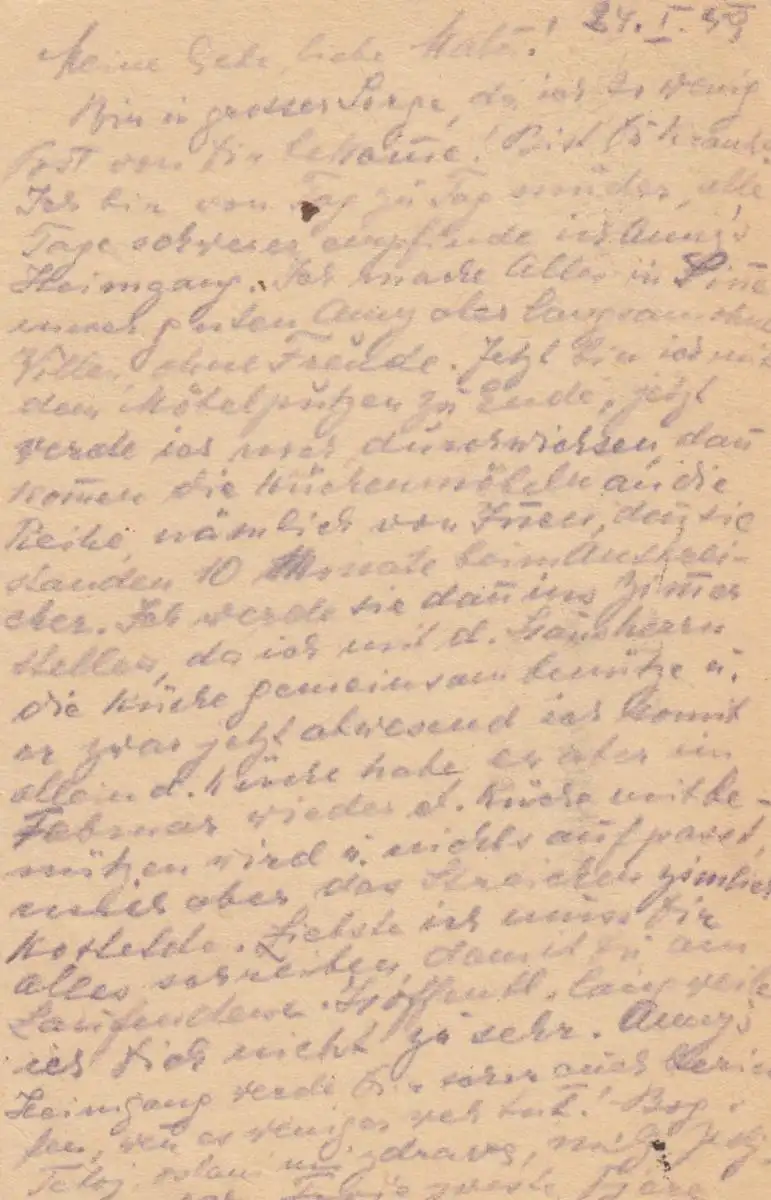 24. I. 43
Meine Gute, liebe
Bin in grosser Sorge, da ich so wenig
Post von Dir bekom̅e! Bist Du krank?
Ich bin von Tag zu Tag müder, alle
Tage schwerer empfinde ich Anny's
Heimgang. Ich mache Alles in Sin̅e
unser guten Anny aber langsam ohne
Willen, ohne Freude. Jetzt bin ich mit
dem Möbelputzen zu Ende, jetzt
werde ich nur durchwichsen, dan̅
kom̅en die Küchenmöbeln an die
Reihe, nämlich von In̅en, den̅ sie
standen 10 Monate beim Anstrei-
cher. Ich werde sie dan̅ ins Zim̅er
stellen, da ich mit d. Hausherrn
die Küche gemeinsam benütze u.
er zwar jetzt abwesend ich somit
allein d. Küche habe, er aber im
Februar wieder d. Küche mitbe-
nützen wird u. nichts aufpasst,
mich aber das Streichen
kostete. Liebste ich muss Dir
alles schreiben, damit Du am
Laufenden. Hoffentl. langweile
ich Dich nicht zu sehr. Anny's
Heimgang werde Dir schon auch
wen̅ es weniger weh tut! Bog i
ostani mi zdrava,